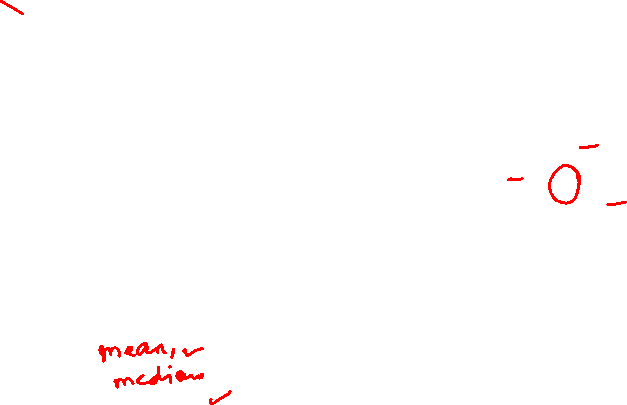 - O -
-
mean, ✓
median
✓